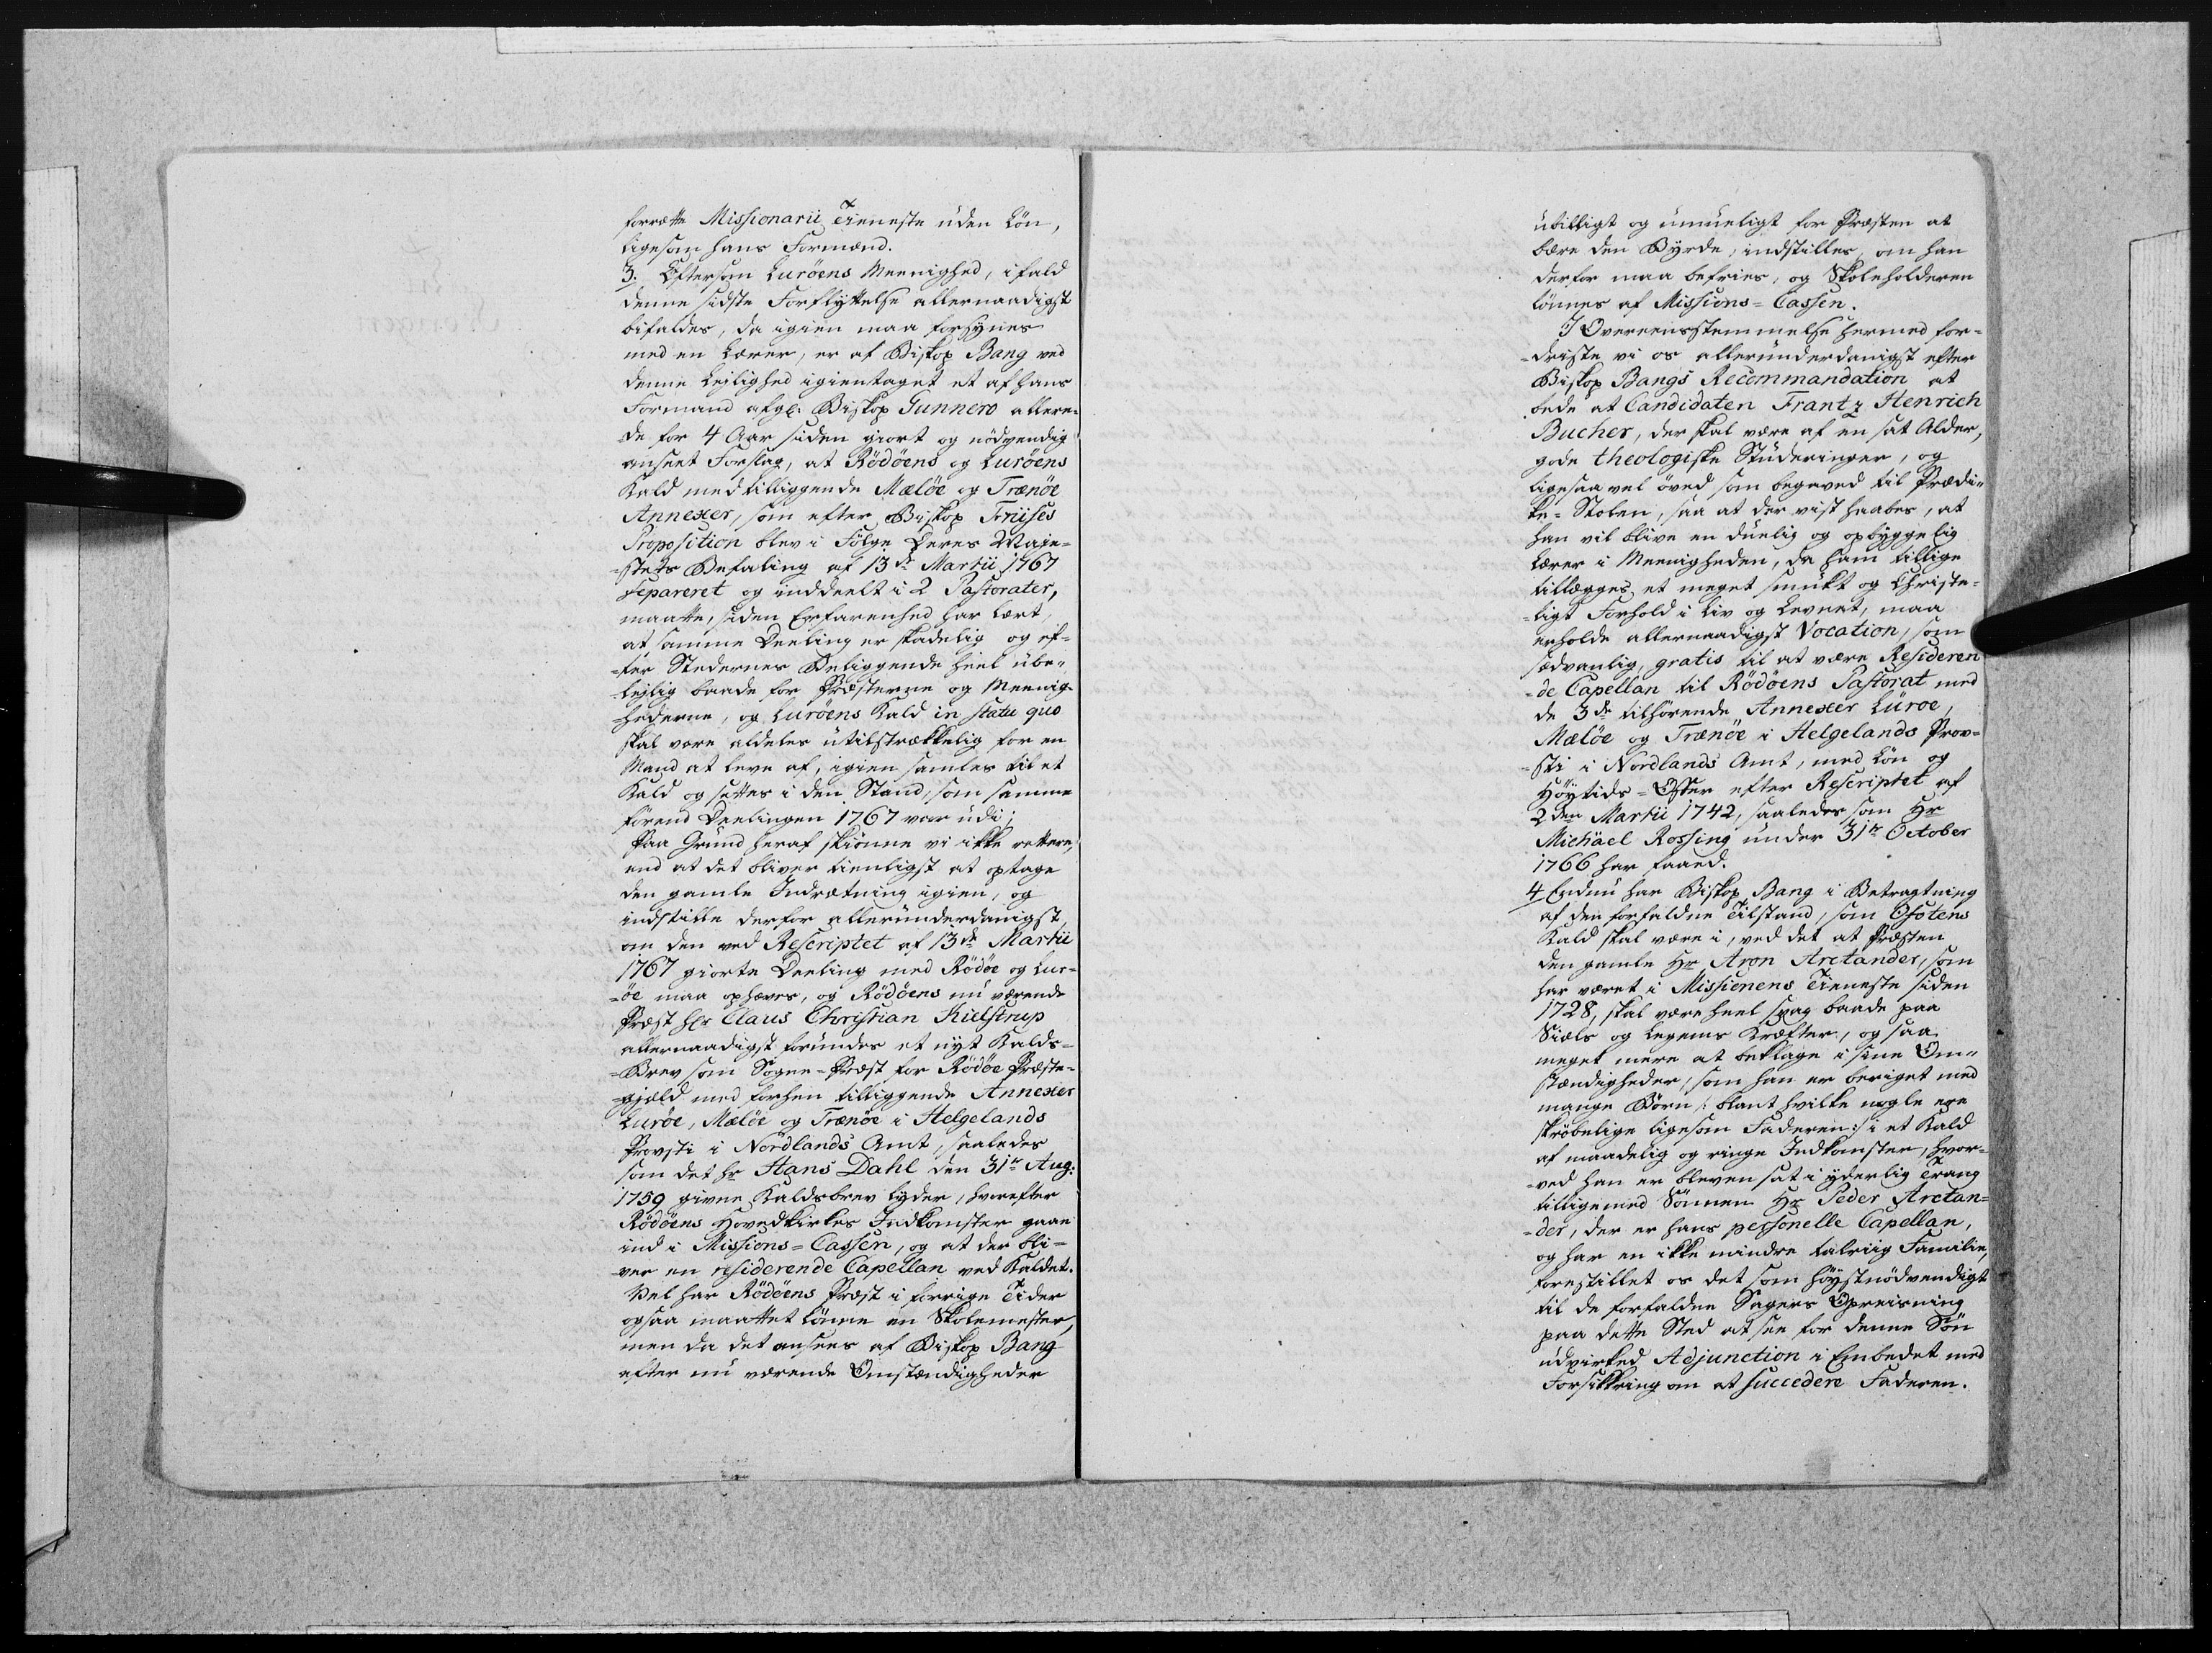 forrætte Missionarii Tieneste uden Løn,
ligesom hans Formænd.
3. Eftersom Luröens Meenighed, i fald
denne sidste Forflyttelse allernaadigst
bifaldes, da igien maa forsynes
med en Lærer, er af Biskop Bang ved
denne Leylighed igientaget et af hans
Formand afgl: Biskop Gunnero allere-
de for 4 Aar siden giort og nödvendig
anseet Forslag, at Rödöens og Luröens
Kald med tilliggende Melöe og Trænöe
Annexer, som efter Biskop Friises
Proposition blev i Følge Deres Maje-
-stets Befaling af 13de Martii 1767
separeret og inddeelt i 2 Pastorater,
maatte, siden Erfarenhed har lært,
at samme Deeling er skadelig og ef-
-ter Stedernes Beliggende heel ube-
-leylig baade for Præsterne og Meenig-
-hederne, og Luröens Kald in statu quo
skal være aldeles utilstrækkelig for en
Mand at leve af, igien samles til et
Kald og sættes i den Stand, som samme
førend Deelingen 1767 var udi;
Paa Grund heraf skiønne vi ikke rettere,
end at det bliver tienligst at optage
den gamle Indretning igien, og
indstille derfor allerunderdanigst,
om den ved Rescriptet af 13de Martii
1767 giorte Deeling med Rödöe og Lur-
-öe maa ophæves, og Rödöens nu værende
Præst Hr Claus Christian Kielstrup
allernaadigst forundes et nyt Kalds-
-Brev som Sogne-Præst for Rödöe Præste-
-gield med forhen tilliggende Annexer
Luröe, Melöe og Trænöe i Helgelands
Provsti i Nordlands Amt, saaledes
som det Hr Hans Dahl den 31te Aug:
1759 givne Kaldsbrev lyder, hvorefter
Rödöens Hovedkirkes Indkomster gaae
ind i Missions-Cassen, og at der bli-
-ver en residerende Capellan ved Kaldet.
Vel har Rödöens Præst i forrige Tider
ogsaa maattet lønne en Skolemester,
men da det ansees af Biskop Bang
efter nu værende Omstændigheder
ubilligt og umueligt for Præsten at
bære den Byrde, indstilles, om han
derfor maa befries, og Skoleholderen
lønnes af Missions-Cassen.
I Overeensstemmelse hermed for-
-driste vi os allerunderdanigst efter
Biskop Bangs Recommandation at
bede at Candidaten Frantz Henrich
Bucher, der skal være af en sat Alder,
gode theologiske Studeringer, og
ligesaa vel øved som begaved til Prædi-
ke-Stolen, saa at der vist haabes, at
han vil blive en duelig og opbyggelig
Lærer i Meenigheden, da ham tillige
tillægges et meget smukt og Christe-
-ligt Forhold i Liv og Levnet, maa
erholde allernaadigst Vocation, som
sædvanlig, gratis til at være Resideren
-de Capellan til Rödöens Pastorat med
de 3de tilhørende Annexer Luroe,
Melöe og Trænöe i Helgelands Prov-
-sti i Nordlands Amt, med Løn og
Høytids-Offer efter Rescriptet af
2den Martii 1742, saaledes som Hr
Michäel Rossing under 31te October
1766 har faaed.
4 Endnu har Biskop Bang i Betragtning
af den forfaldne Tilstand, som Ofotens
Kald skal være i, ved det at Præsten
den gamle Hr Aron Arctander, som
har været i Missionens Tieneste siden
1728, skal være heel svag baade paa
Siæls og Legems Kræfter, og saa
meget mere at beklage i sine Om-
stændigheder, som han er beriget med
mange Børn /: blant hvilke nogle ere
skrøbelige ligesom Faderen :/ i et Kald
af maadelig og ringe Indkomster, hvor-
-ved han er bleven sat i yderlig Trang
tilligemed Sönnen Hr Peder Arctan-
-der, der er hans personelle Capellan,
og har en ikke mindre talrüg Familie,
forestillet os det som høystnødvendigt
til de forfaldne Sagers Opreisning
paa dette Sted at see for denne Søn
udvirked Adjunction i Embedet med
Forsikkring om at succedere Faderen.